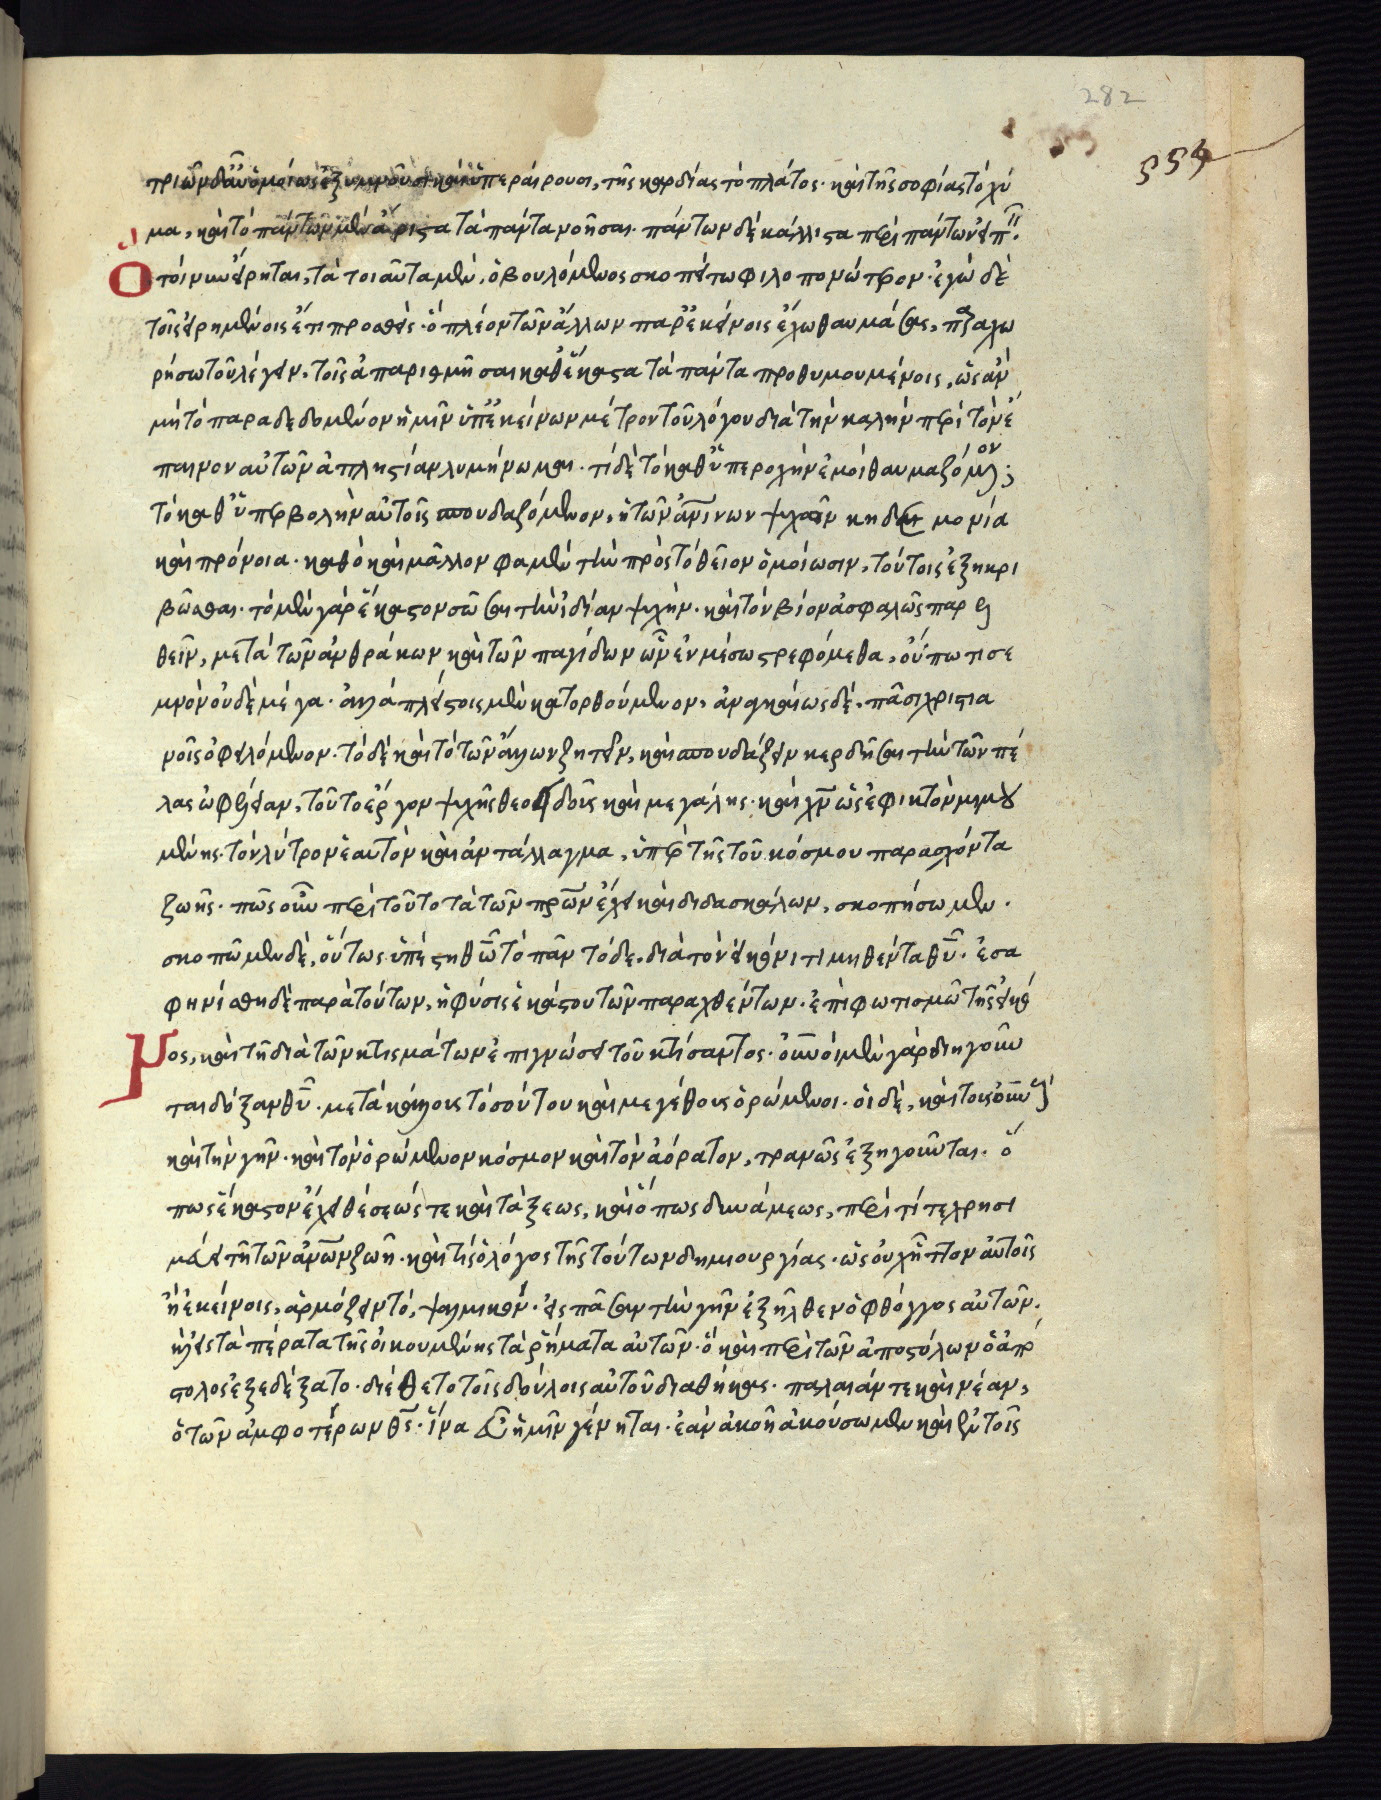 282
554
τριῶν δαῦ ὁμοίως ἐξυμνοῦσι καὶ ὑπεραίρουσι, τῆς καρδίας τὸ πλάτος· καὶ τῆς σοφίας τὸ χύ
μα, καὶ τὸ πάντων μὲν ἄριστα τὰ πάντα νοῆσαι· πάντων δὲ κάλλιστα περὶ πάντων εἰπεῖν·
Ὅτοίνυν εἴρηται, τὰ τοιαῦτα μὲν, ὁ βουλόμενος σκοπείτω φιλοπονώτερον· ἐγὼ δὲ
τοῖς εἰρημένοις ἔτι προσθεὶς· ὃ πλέον τῶν ἄλλων παρ' ἐκείνοις ἔχω θαυμάσαι, παραχω
ρήσω τοῦ λέγειν, τοῖς ἀπαριθμῆσαι καθέκαστα τὰ πάντα προθυμουμένοις, ὡς ἂν
μὴ τὸ παραδεδομένον ἡμῖν ὑπ' ἐκείνων μέτρον τοῦ λόγου διὰ τὴν καλὴν περὶ τὸν ἔ
παινον αὐτῶν ἀπληστίαν λυμήνωμαι· τί δὲ τὸ καθ' ὑπεροχὴν ἐμοὶ θαυμαζόμενον;
τὸ καθ' ὑπερβολὴν αὐτοῖς σπουδαζόμενον, ἡ τῶν ἀνθρωπίνων ψυχῶν κηδεμονία
καὶ πρόνοια· καθὸ καὶ μᾶλλον φαμὲν τὴν πρὸς τὸ θεῖον ὁμοίωσιν, τούτοις ἐξηκρι
βῶσθαι· τὸ μὲν γὰρ ἕκαστον σῶσαι τὴν ἰδίαν ψυχὴν· καὶ τὸν βίον ἀσφαλῶς παρελ
θεῖν, μετὰ τῶν ἀνθράκων καὶ τῶν παγίδων ὧν ἐν μέσω στρεφόμεθα, οὔπω τι σε
μνὸν οὐδὲ μέγα· ἀλλὰ πλείστοις μὲν κατορθούμενον, ἀναγκαίως δὲ, πᾶσι χριστια
νοῖς ὀφειλόμενον· τὸ δὲ καὶ τὸ τῶν ἄλλων ζητεῖν, καὶ σπουδάζειν κερδῆσαι τὴν τῶν πέ
λας ὠφέλειαν, τοῦτο ἔργον ψυχῆς θεοειδοῦς καὶ μεγάλης· καὶ χριστὸν ὡς ἐφικτὸν μιμου
μένης· τὸν λύτρον ἑαυτὸν καὶ ἀντάλλαγμα, ὑπὲρ τῆς τοῦ κόσμου παρασχόντα
ζωῆς· πῶς οὖν περὶ τοῦτο τὰ τῶν πατέρων ἔχει καὶ διδασκάλων, σκοπήσωμεν·
σκοπῶμεν δὲ, οὕτως· ὑπέστη θεῶ τὸ πᾶν τόδε, διὰ τὸν εἰκόνι τιμηθέντα θεοῦ· ἐσα
φηνίσθη δὲ παρὰ τούτων, ἡ φύσις ἑκάστου τῶν παραχθέντων· ἐπὶ φωτισμῶ τῆς εἰκό
νος, καὶ τῇ διὰ τῶν κτισμάτων ἐπιγνώσει τοῦ κτίσαντος· οὐρανοὶ μὲν γὰρ διηγοῦν
ται δόξαν θεοῦ· μετὰ κάλλους τοσούτου καὶ μεγέθους ὁρώμενοι· οἱ δὲ, καὶ τοὺς οὐρανοὺς
καὶ τὴν γῆν· καὶ τὸν ὁρώμενον κόσμον καὶ τὸν ἀόρατον, τρανῶς ἐξηγοῦνται· ὅ
πως ἕκαστον ἔχει θέσεώς τε καὶ τάξεως, καὶ ὅπως δυνάμεως, περὶ τί τε χρησι
μεύει τῇ τῶν ἀνθρώπων ζωῇ· καὶ τίς ὁ λόγος τῆς τούτων δημιουργίας· ὡς οὐχ ἧττον αὐτοῖς
ἢ ἐκείνοις, ἁρμόζειν τὸ, ψαλμικόν· εἰς πᾶσαν τὴν γῆν ἐξῆλθεν ὁ φθόγγος αὐτῶν·
καὶ εἰς τὰ πέρατα τῆς οἰκουμένης τὰ ῥήματα αὐτῶν· ὃ καὶ περὶ τῶν ἀποστόλων ὁ ἀπό
στολος ἐξεδέξατο· διέθετο τοῖς δούλοις αὐτοῦ διαθήκας· παλαιάν τε καὶ νέαν,
ὁ τῶν ἀμφοτέρων θεός· ἵνα ἡμῖν γένηται· ἐὰν ἀκοῇ ἀκούσωμεν καὶ ἐν τοῖς